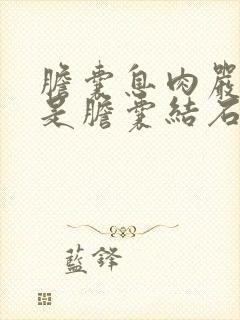 膽囊息肉嚴
是膽囊結石
藍鋒